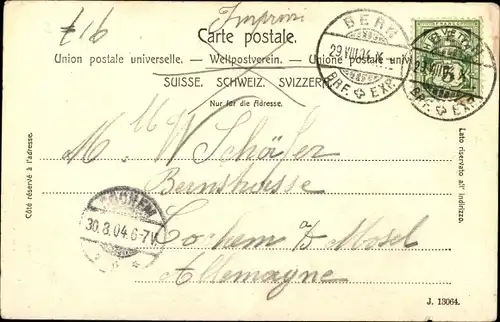 Imprimi
Carte postale.
Union postale universelle. — Weltpostverein. — Unione postale univ
SUISSE. SCHWEIZ. SVIZZERA
Nur für die Adresse.
BERN
29.VIII.04
BRF. EXP.
BRF. EXP.
Côté réservé à l'adresse.
Lato riservato all' indirizzo.
M. W Schäfer
Bernstrasse
Cochem a/d Mosel
Allemagne
COCHEM
30.8.04.6-7V.
J. 13064.